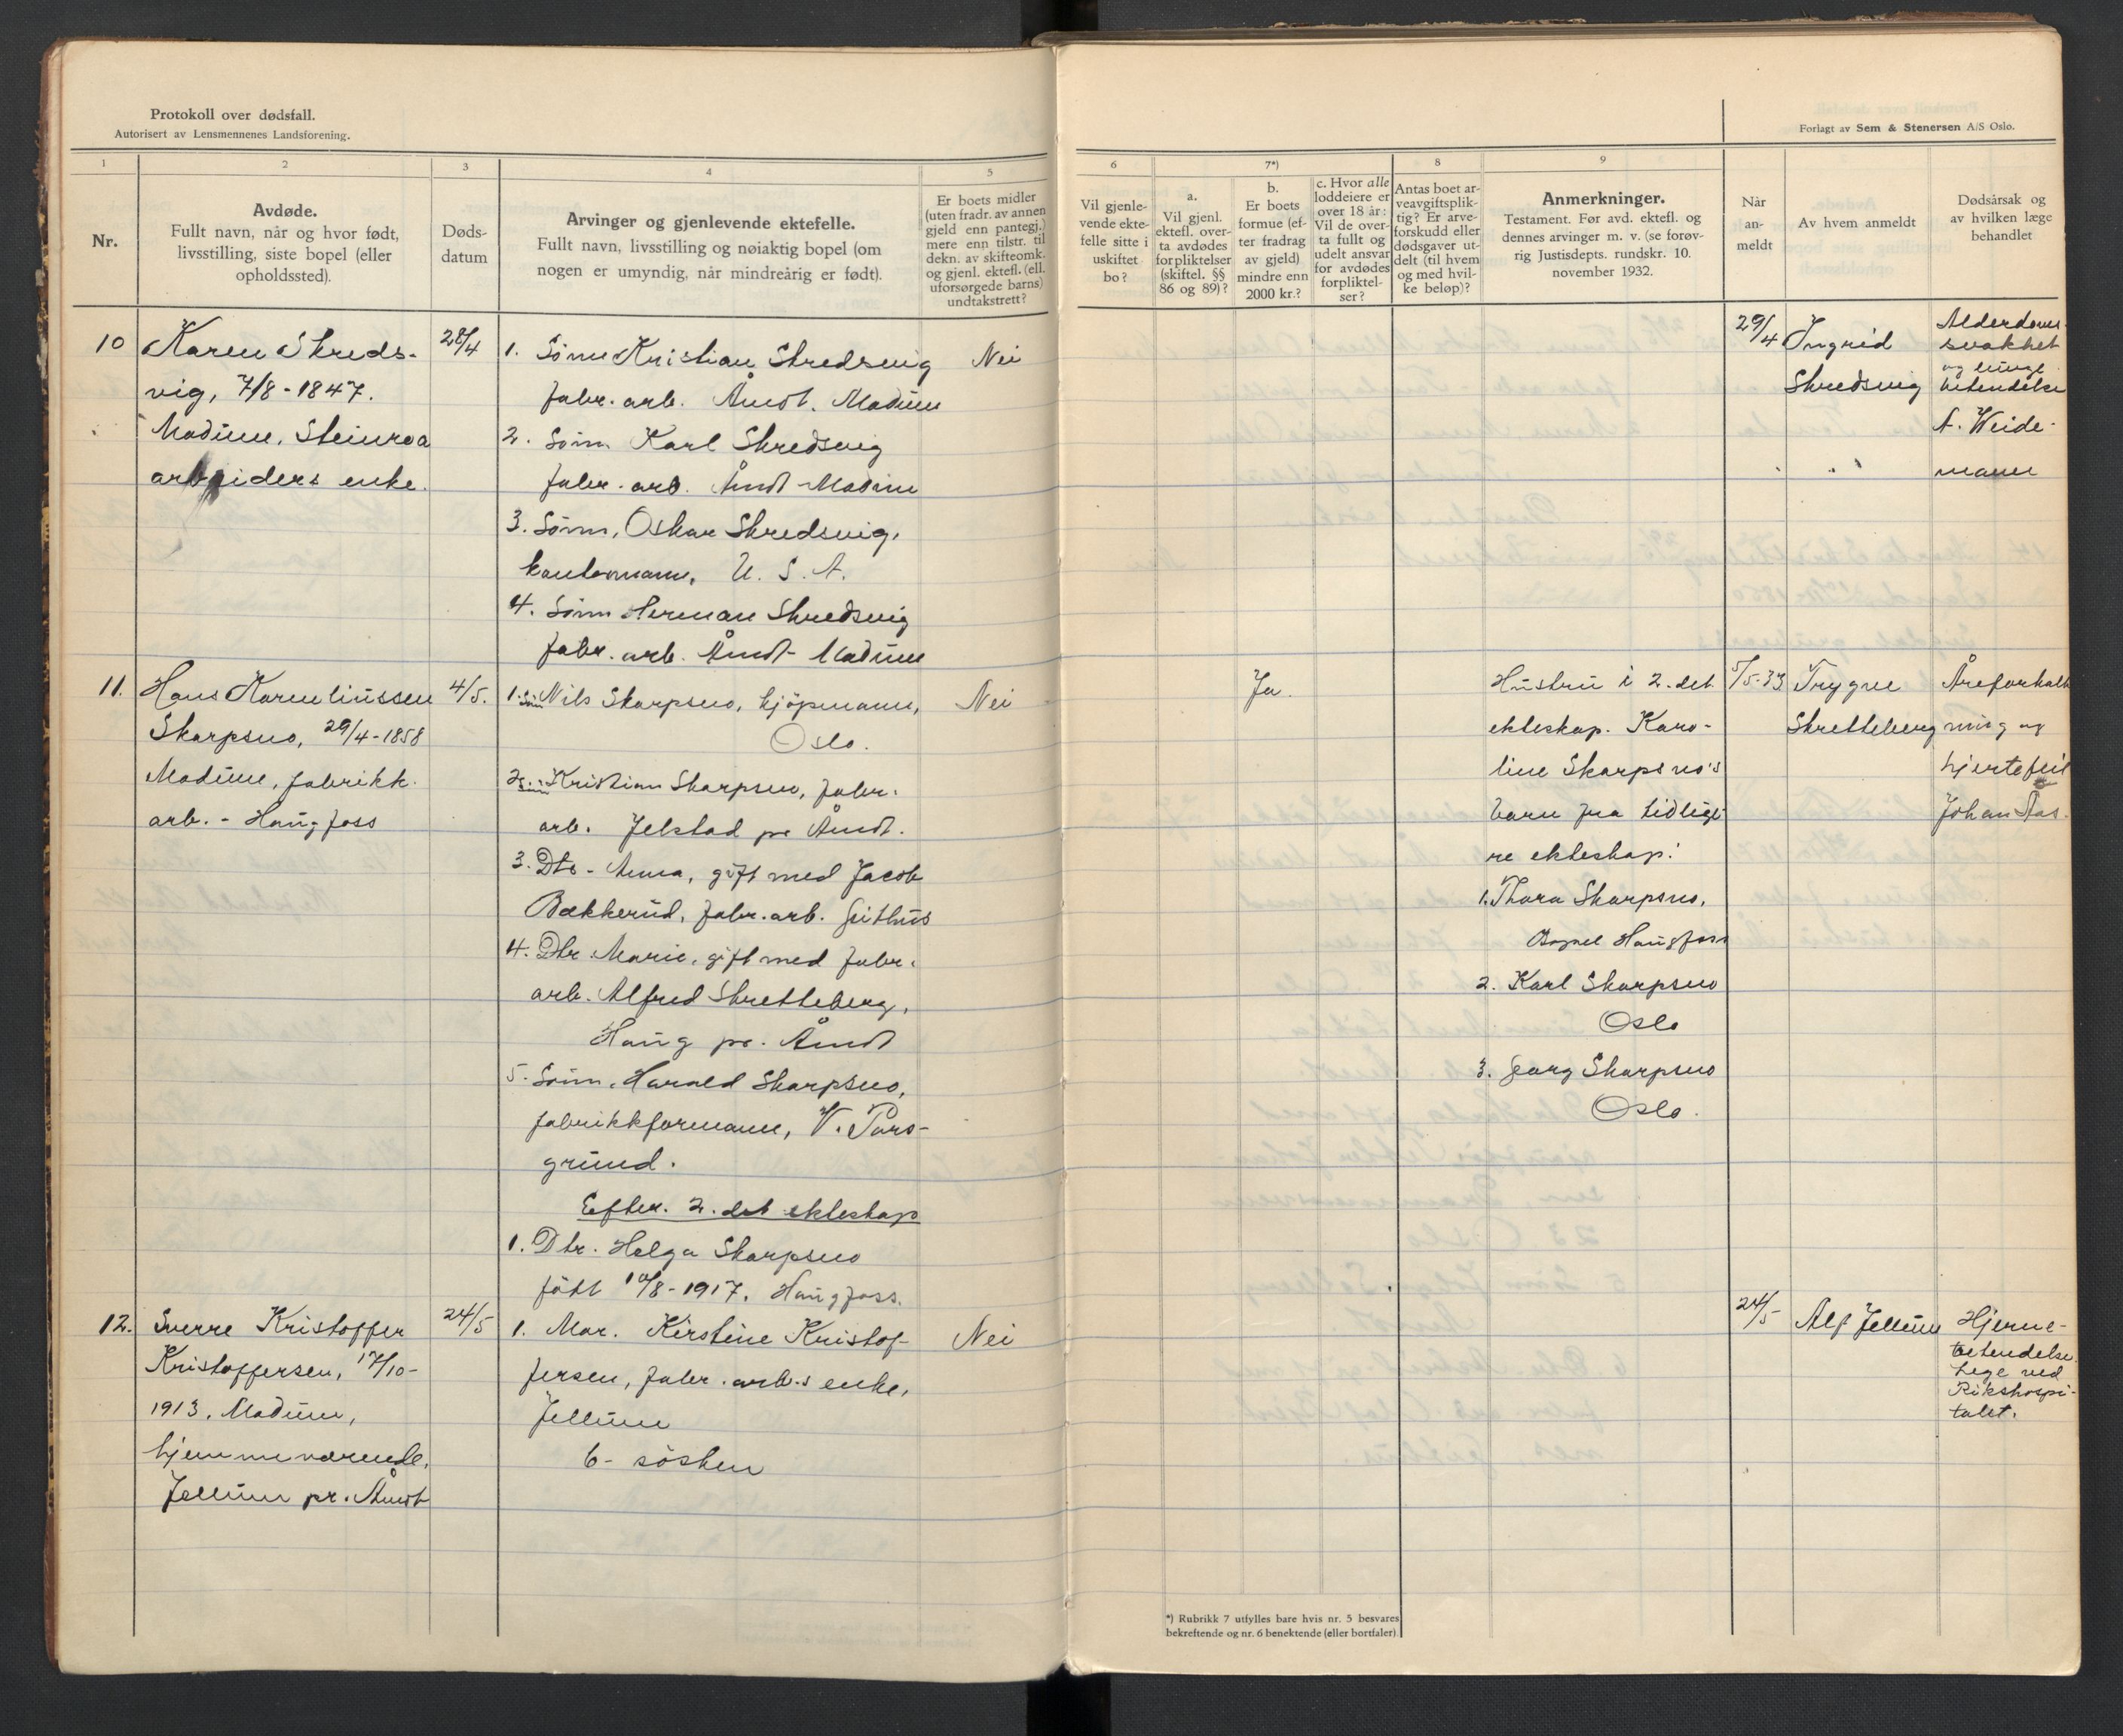 Protokoll over dødsfall.
Autorisert av Lensmennenes Landsforening.
1
2
3
4
5
Nr.
Avdøde.
Fullt navn, når og hvor født,
livsstilling, siste bopel (eller
opholdssted).
Døds-
datum
Arvinger og gjenlevende ektefelle.
Fullt navn, livsstilling og nøiaktig bopel (om
nogen er umyndig, når mindreårig er født).
Er boets midler
(uten fradr. av annen
gjeld enn pantegj.)
mere enn tilstr. til
dekn. av skifteomk.
og gjenl. ektefl. (ell.
uforsørgede barns)
undtakstrett?
10
Karen Skreds-
vig, 7/8-1847.
Modum, Steinroa
arbeiders enke.
28/4
1. Sønn Kristian Skredsvig
fabr. arb. Åmot. Modum
2. Sønn Karl Skredsvig
fabr. arb. Åmot-Modum
3. Sønn, Oskar Skredsvig,
kontormann, U. S. A.
4. Sønn Herman Skredsvig
fabr. arb. Åmot-Modum
Nei
11.
Hans Karenliussen
Skarpsno, 29/4-1858
Modum, fabrikk.
arb. - Haugfoss
4/5.
1. Sønn Nils Skarpsno, kjøpmann,
Oslo.
2. Sønn Kristian Skarpsno, fabr.
arb. Jelstad pr Åmot.
3. Dtr - Anna, gift med Jacob
Bakkerud, fabr. arb. Geithus
4. Dtr. Marie, gift med fabr.
arb. Alfred Skretteberg,
Haug pr. Åmot
5. Sønn. Harald Skarpsno,
fabrikkformann, V. Pors-
grund.
Efter. 2. det ekteskap
1. Dtr. Helga Skarpsno
født 10/8-1917. Haugfoss.
Nei
12.
Sverre Kristoffer
Kristoffersen, 17/10-
1913. Modum,
hjemmeværende.
Jellum pr. Åmot
24/5
1. Mor. Kirstine Kristof-
fersen, fabr. arb.s enke,
Jellum
6- søsken
Nei
Forlagt av Sem & Stenersen A/S Oslo.
6
7*)
8
9
Vil gjenle-
vende ekte-
felle sitte i
uskiftet
bo?
a.
Vil gjenl.
ektefl. over-
ta avdødes
forpliktelser
(skiftel. §§
86 og 89)?
b.
Er boets
formue (ef-
ter fradrag
av gjeld)
mindre enn
2000 kr.?
c. Hvor alle
loddeiere er
over 18 år:
Vil de over-
ta fullt og
udelt ansvar
for avdødes
forpliktel-
ser?
Antas boet ar-
veavgiftsplik-
tig? Er arve-
forskudd eller
dødsgaver ut-
delt (til hvem
og med hvil-
ke beløp)?
Anmerkninger.
Testament. Før avd. ektefl. og
dennes arvinger m. v. (se forøv-
rig Justisdepts. rundskr. 10.
november 1932.
Når
an-
meldt
Av hvem anmeldt
Dødsårsak og
av hvilken læge
behandlet
29/4
Ingrid
Skredsvig
Alderdoms-
svakhet
og lunge
betendelse
A. Weide-
mann
Ja.
Hustru i 2. det
ekteskap. Karo-
line Skarpsno's
barn fra tidlige-
re ekteskap:
1. Thora Skarpsno,
Bopel Haugfoss
2. Karl Skarpsno
Oslo
3. Georg Skarpsno
Oslo.
5/5-33
Trygve
Skretteberg
Åreforkalk
ning og
hjertefeil
Johan Aas.
24/5
Alf Jellum
Hjerne-
betendelse.
Lege ved
Rikshospi-
talet.
*) Rubrikk 7 utfylles bare hvis nr. 5 besvares
bekreftende og nr. 6 benektende (eller bortfaler).